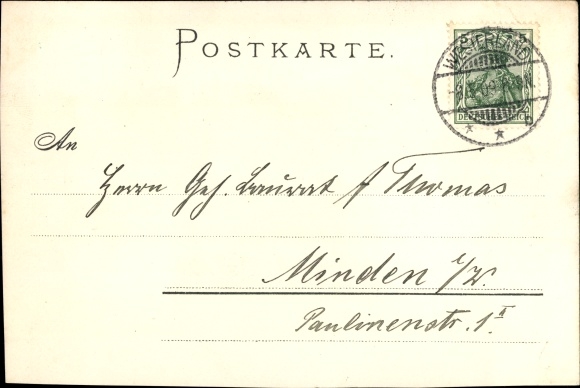 POSTKARTE.
WESTERLAND
DEUTSCHES REICH
An
Herrn Geh. Baurat f Thomas
Minden i/W.
Paulinenstr. 1 II